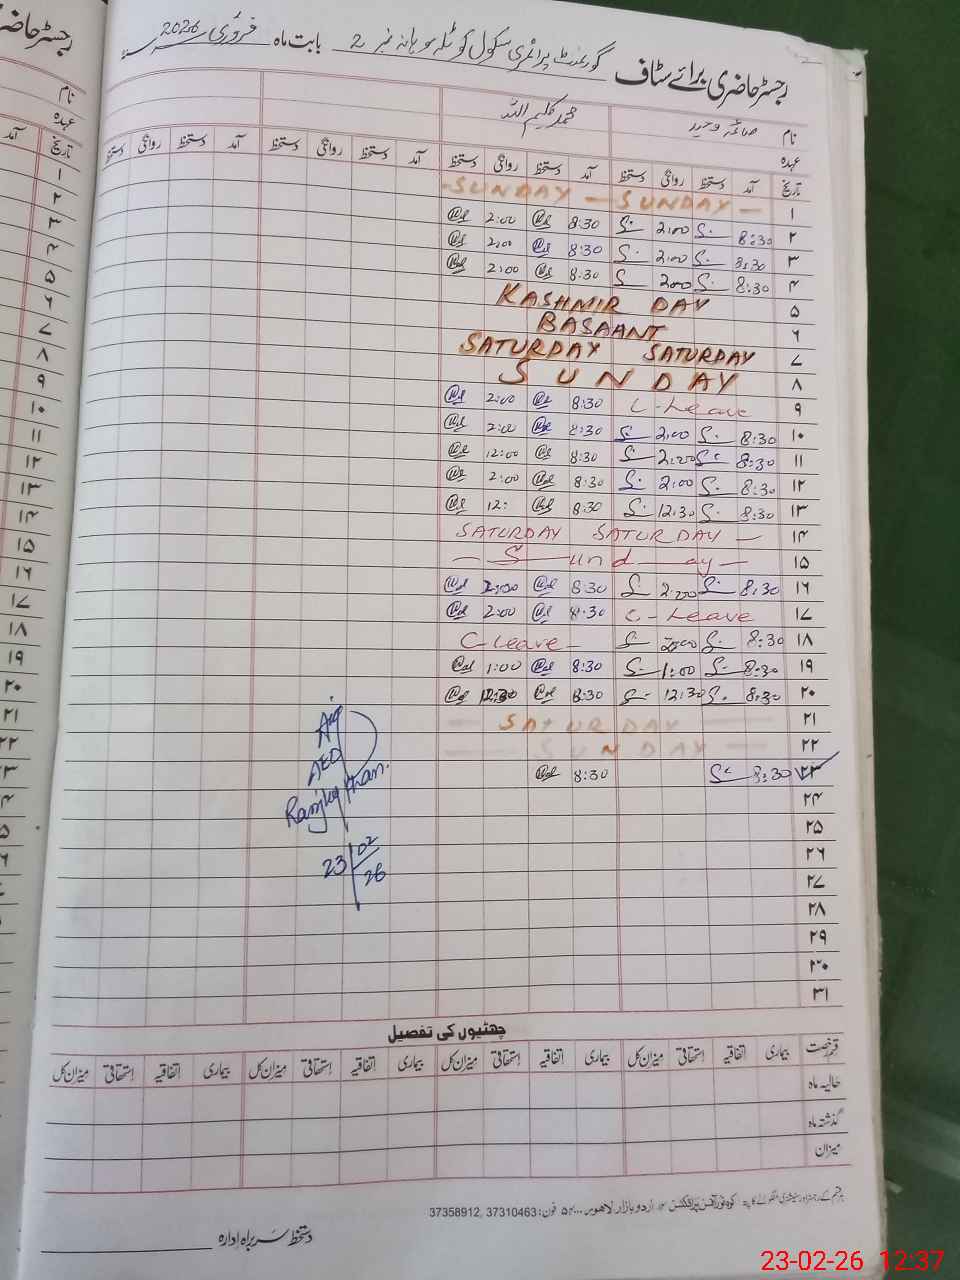 رجسٹر حاضری برائے سٹاف گورنمنٹ پرائمری سکول کوٹلہ سوہانہ نمبر 2 بابت ماہ فروری 2026
نام صائمہ وحید محمد کلیم اللہ
عہدہ
تاریخ آمد دستخط روانگی دستخط آمد دستخط روانگی دستخط آمد دستخط روانگی دستخط آمد دستخط روانگی دستخط
۱ SUNDAY - SUNDAY -
۲ 8:30 S. 2:00 S. 8:30 2:00
۳ 8:30 S. 2:00 S. 8:30 2:00
۴ 8:30 S. 200 S 8:30 2:00
۵ KASHMIR DAY
۶ BASAANT
۷ SATURDAY SATURDAY
۸ SUNDAY
۹ C-Leave 8:30 2:00
۱۰ 8:30 S. 2:00 S. 8:30 2:00
۱۱ 8:30 S. 2:00 S. 8:30 12:00
۱۲ 8:30 S. 2:00 S. 8:30 2:00
۱۳ 8:30 S. 12:30 S. 8:30 12:
۱۴ SATURDAY SATURDAY -
۱۵ - Sunday -
۱۶ 8:30 S. 2:00 S. 8:30 2:00
۱۷ C-Leave 8:30 2:00
۱۸ 8:30 S. 2:00 S. C-Leave -
۱۹ 8:30 S. 1:00 S. 8:30 1:00
۲۰ 8:30 S. 12:30 S. 8:30 12:30
۲۱ SATURDAY
۲۲ SUNDAY
۲۳ 8:30 S. 8:30
AEO
23/02/26
۲۴
۲۵
۲۶
۲۷
۲۸
۲۹
۳۰
۳۱
چھٹیوں کی تفصیل
قسم رخصت بیماری اتفاقیہ استحقاقی میزان کل بیماری اتفاقیہ استحقاقی میزان کل بیماری اتفاقیہ استحقاقی میزان کل بیماری اتفاقیہ استحقاقی میزان کل
حالیہ ماہ
گذشتہ ماہ
میزان
ہر قسم کے رجسٹر اور سٹیشنری منگوانے کا پتہ: کوہ نور آفس پراڈکٹس اردو بازار لاہور فون: 37310463, 37358912
دستخط سربراہ ادارہ
رجسٹر حاضری
نام
عہدہ
تاریخ آمد
۱
۲
۳
۴
۵
۶
۷
۸
۹
۱۰
۱۱
۱۲
۱۳
۱۴
۱۵
۱۶
۱۷
۱۸
۱۹
۲۰
۲۱
۲۲
۲۳
23-02-26 12:37